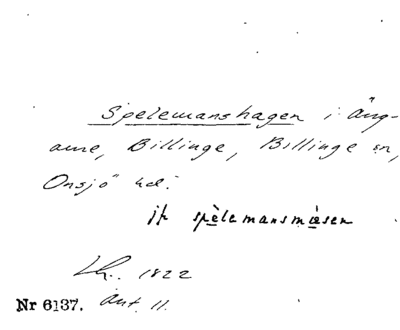 Spelemanshagen i äng-
arne, Billinge, Billinge sn,
Onsjö hd.
jfr spèlemansmàsen
Lh. 1822
Ant. 11.
Nr 6137.